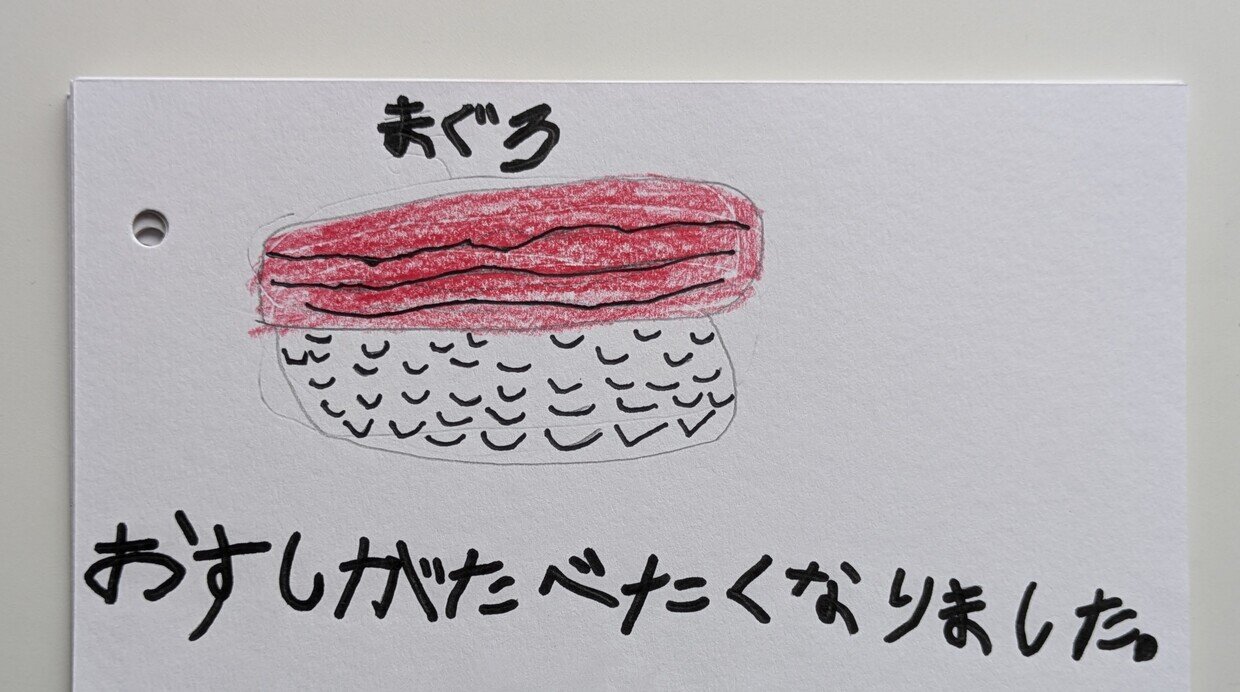 まぐろ
おすしがたべたくなりました。